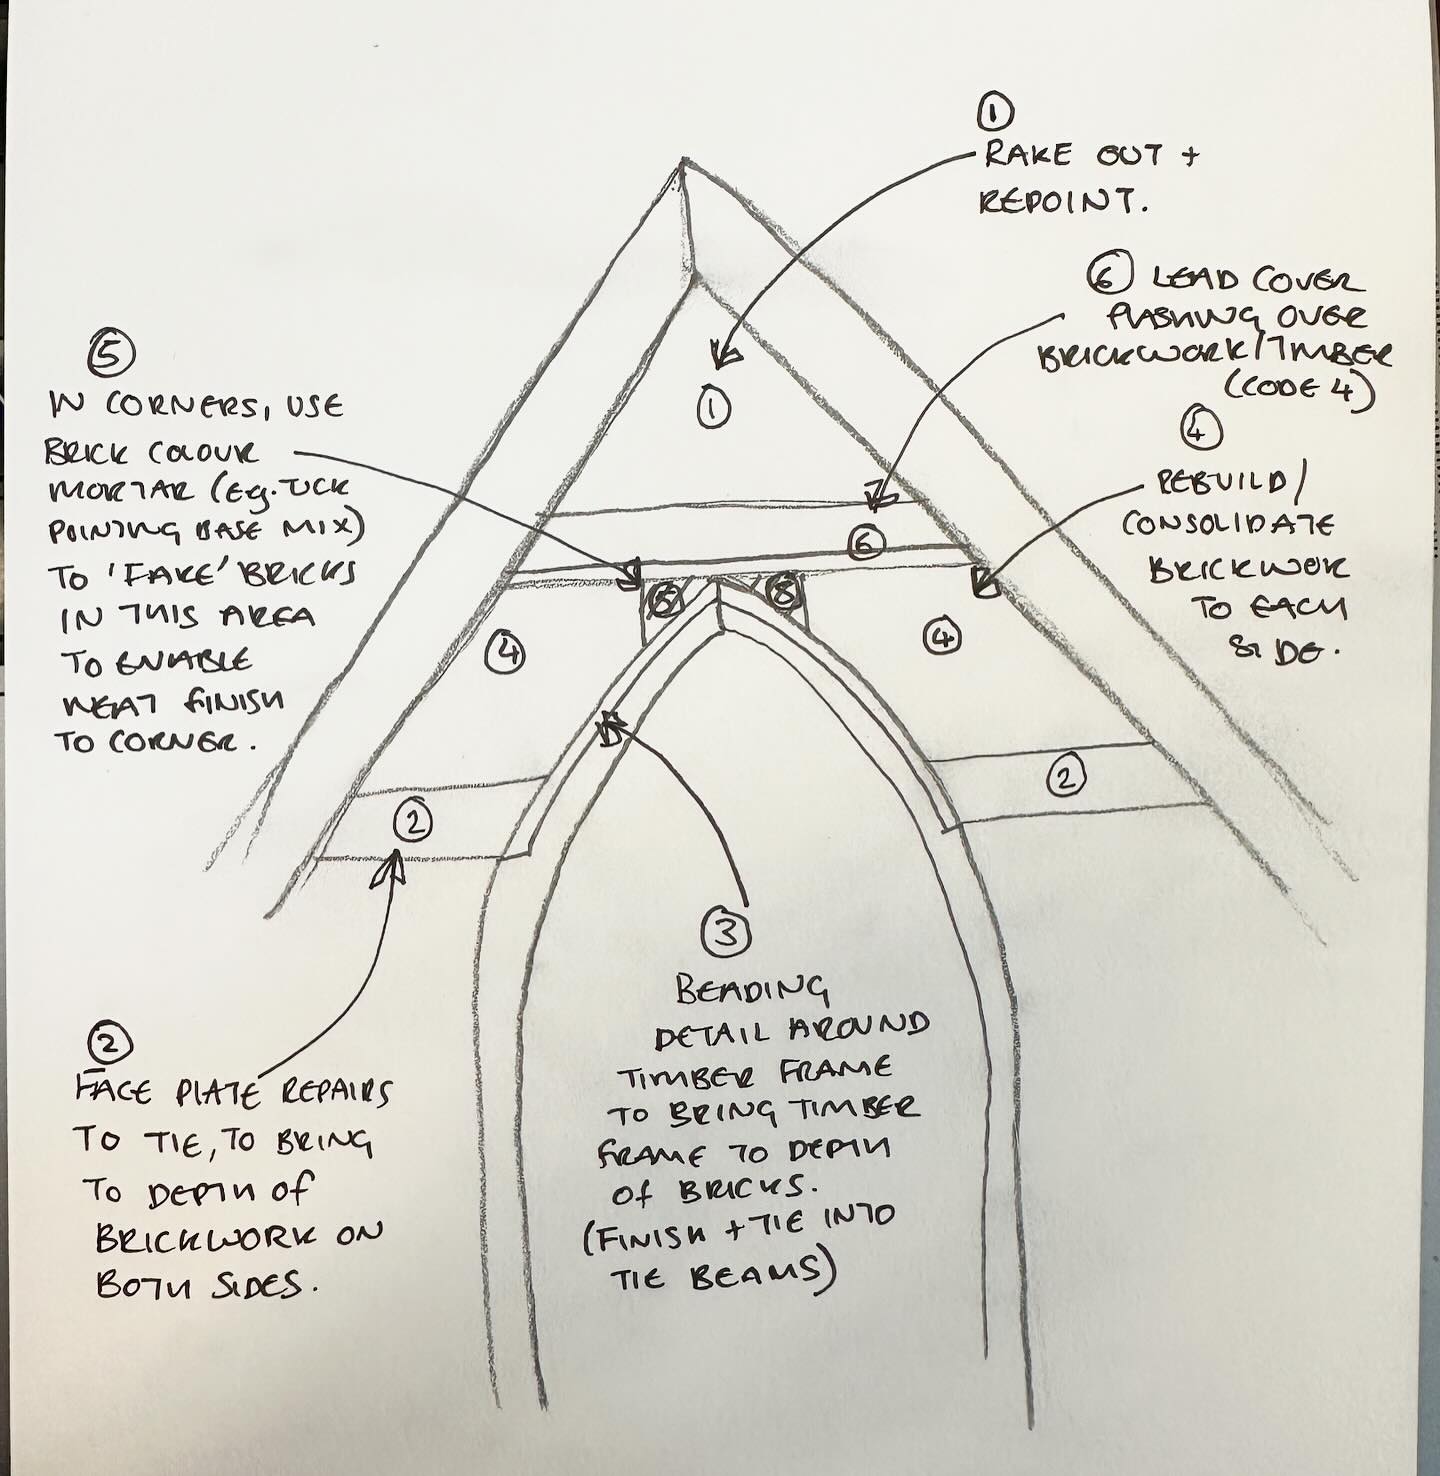 ①
RAKE OUT +
REPOINT.
⑥ LEAD COVER
FLASHING OVER
BRICKWORK/TIMBER
(CODE 4)
④
REBUILD/
CONSOLIDATE
BRICKWOR
TO EACH
SIDE.
⑤
IN CORNERS, USE
BRICK COLOUR
MORTAR (Eg. TUCK
POINTING BASE MIX)
TO 'FAKE' BRICKS
IN THIS AREA
TO ENABLE
NEAT FINISH
TO CORNER.
①
⑥
⑤
⑤
④
④
②
②
③
BEADING
DETAIL AROUND
TIMBER FRAME
TO BRING TIMBER
FRAME TO DEPTH
OF BRICKS.
(FINISH + TIE INTO
TIE BEAMS)
②
FACE PLATE REPAIRS
TO TIE, TO BRING
TO DEPTH OF
BRICKWORK ON
BOTH SIDES.